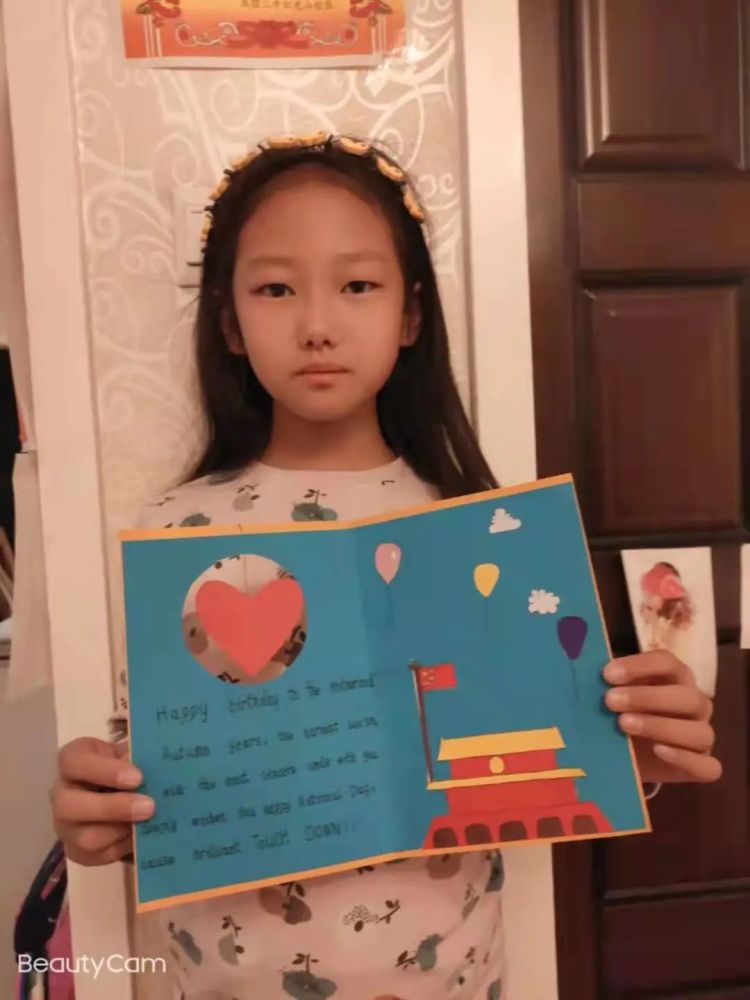 Happy birthday to the motherland
Autumn years, the earnest
the most sincere smile with you
wishes you happy National Day,
cause brilliant TOUCH DOWN!!
BeautyCam